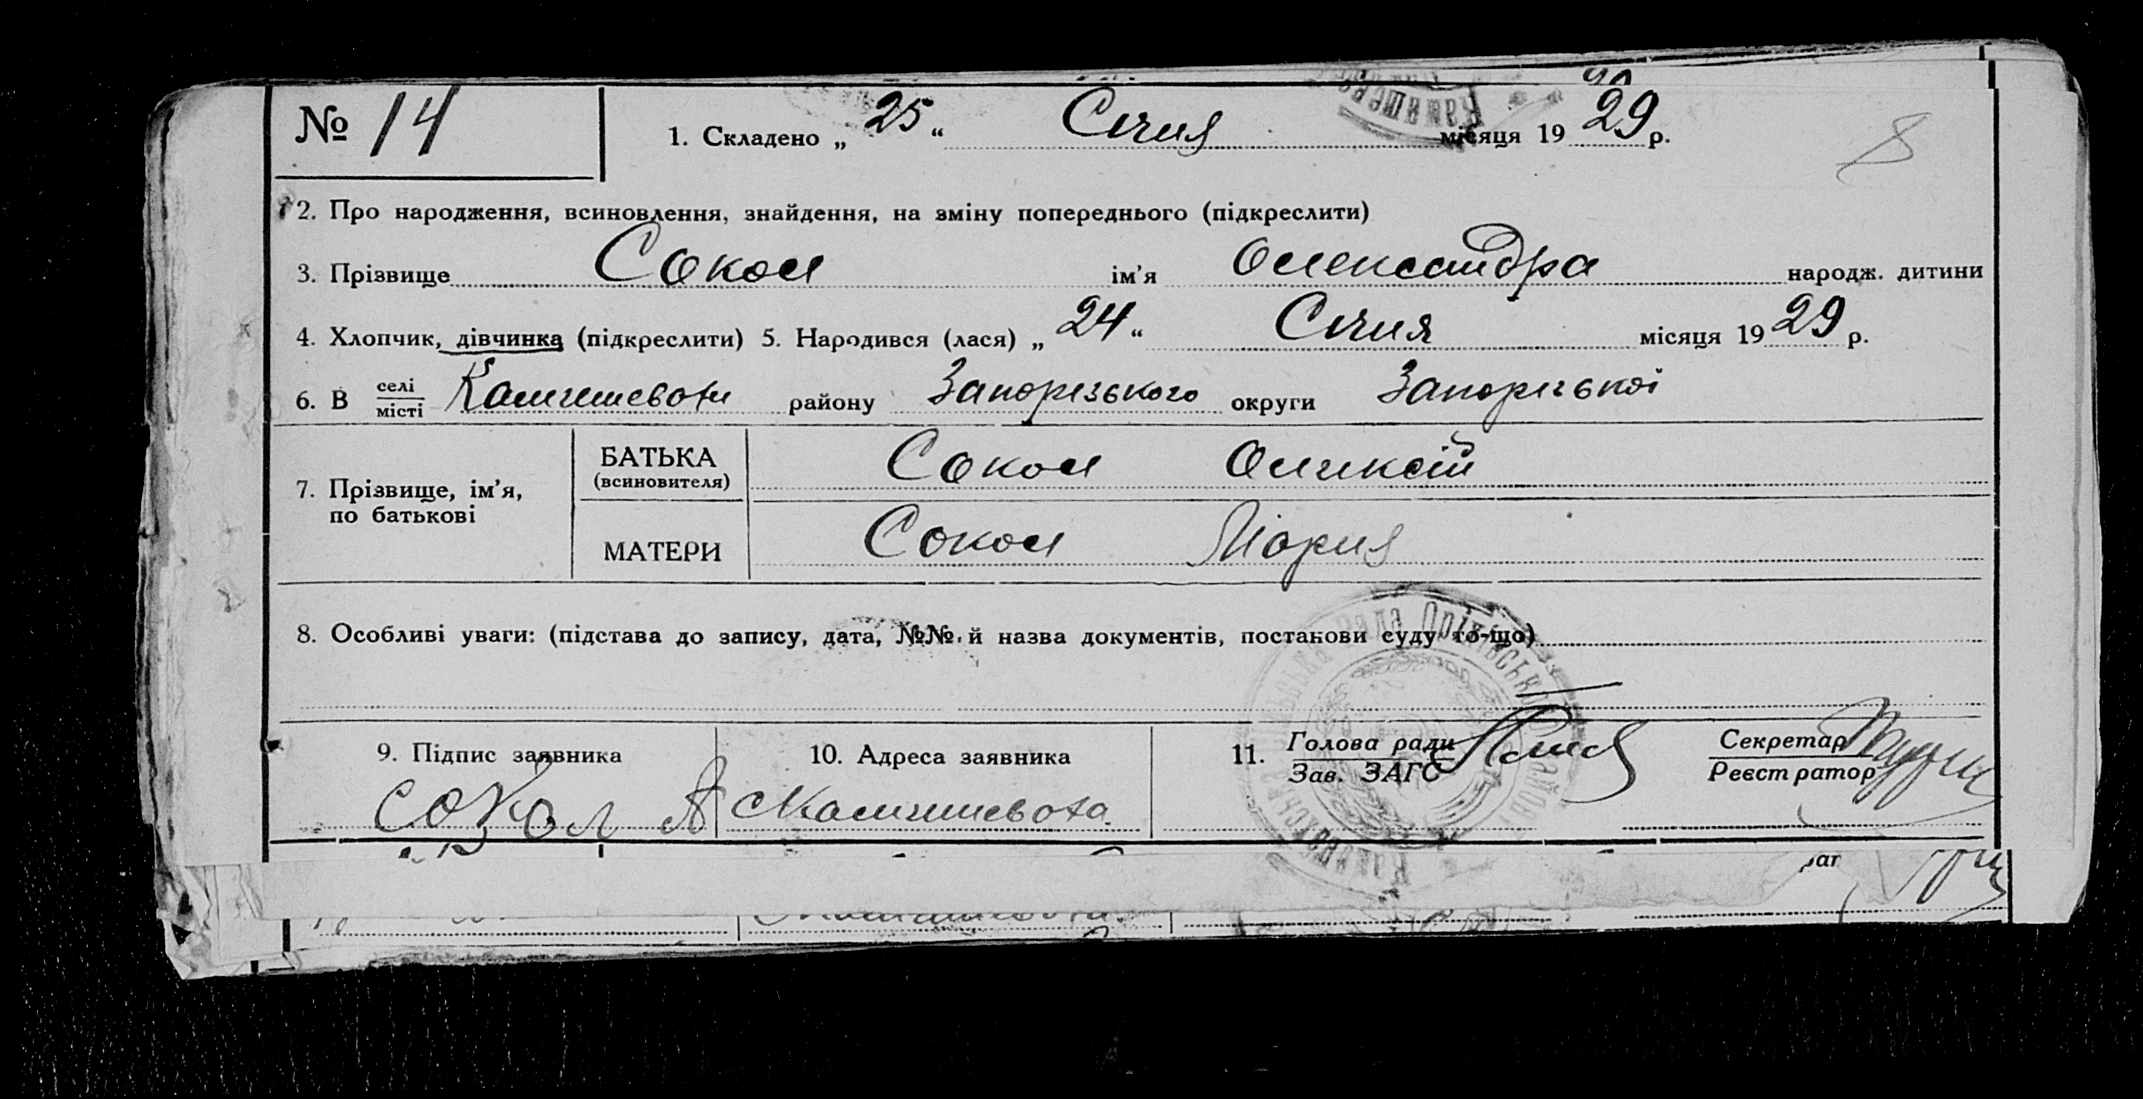 № 14 1. Складено „ 25 “ Січня місяця 19 29 р. 8
2. Про народження, всиновлення, знайдення, на зміну попереднього (підкреслити)
3. Прізвище Сокол ім’я Олександра народж. дитини
4. Хлопчик, дівчинка (підкреслити) 5. Народився (лася) „ 24 “ Січня місяця 19 29 р.
6. В селі/місті Камишеват района Запорізького округи Запорізької
7. Прізвище, ім’я, по батькові
БАТЬКА (всиновителя) Сокол Олексій
МАТЕРИ Сокол Мария
8. Особливі уваги: (підстава до запису, дата, №№ й назва документів, постанови суду то-що)
9. Підпис заявника 10. Адреса заявника 11. Голова ради Секретар
Зав. ЗАГС Реєстратор
Сокол А